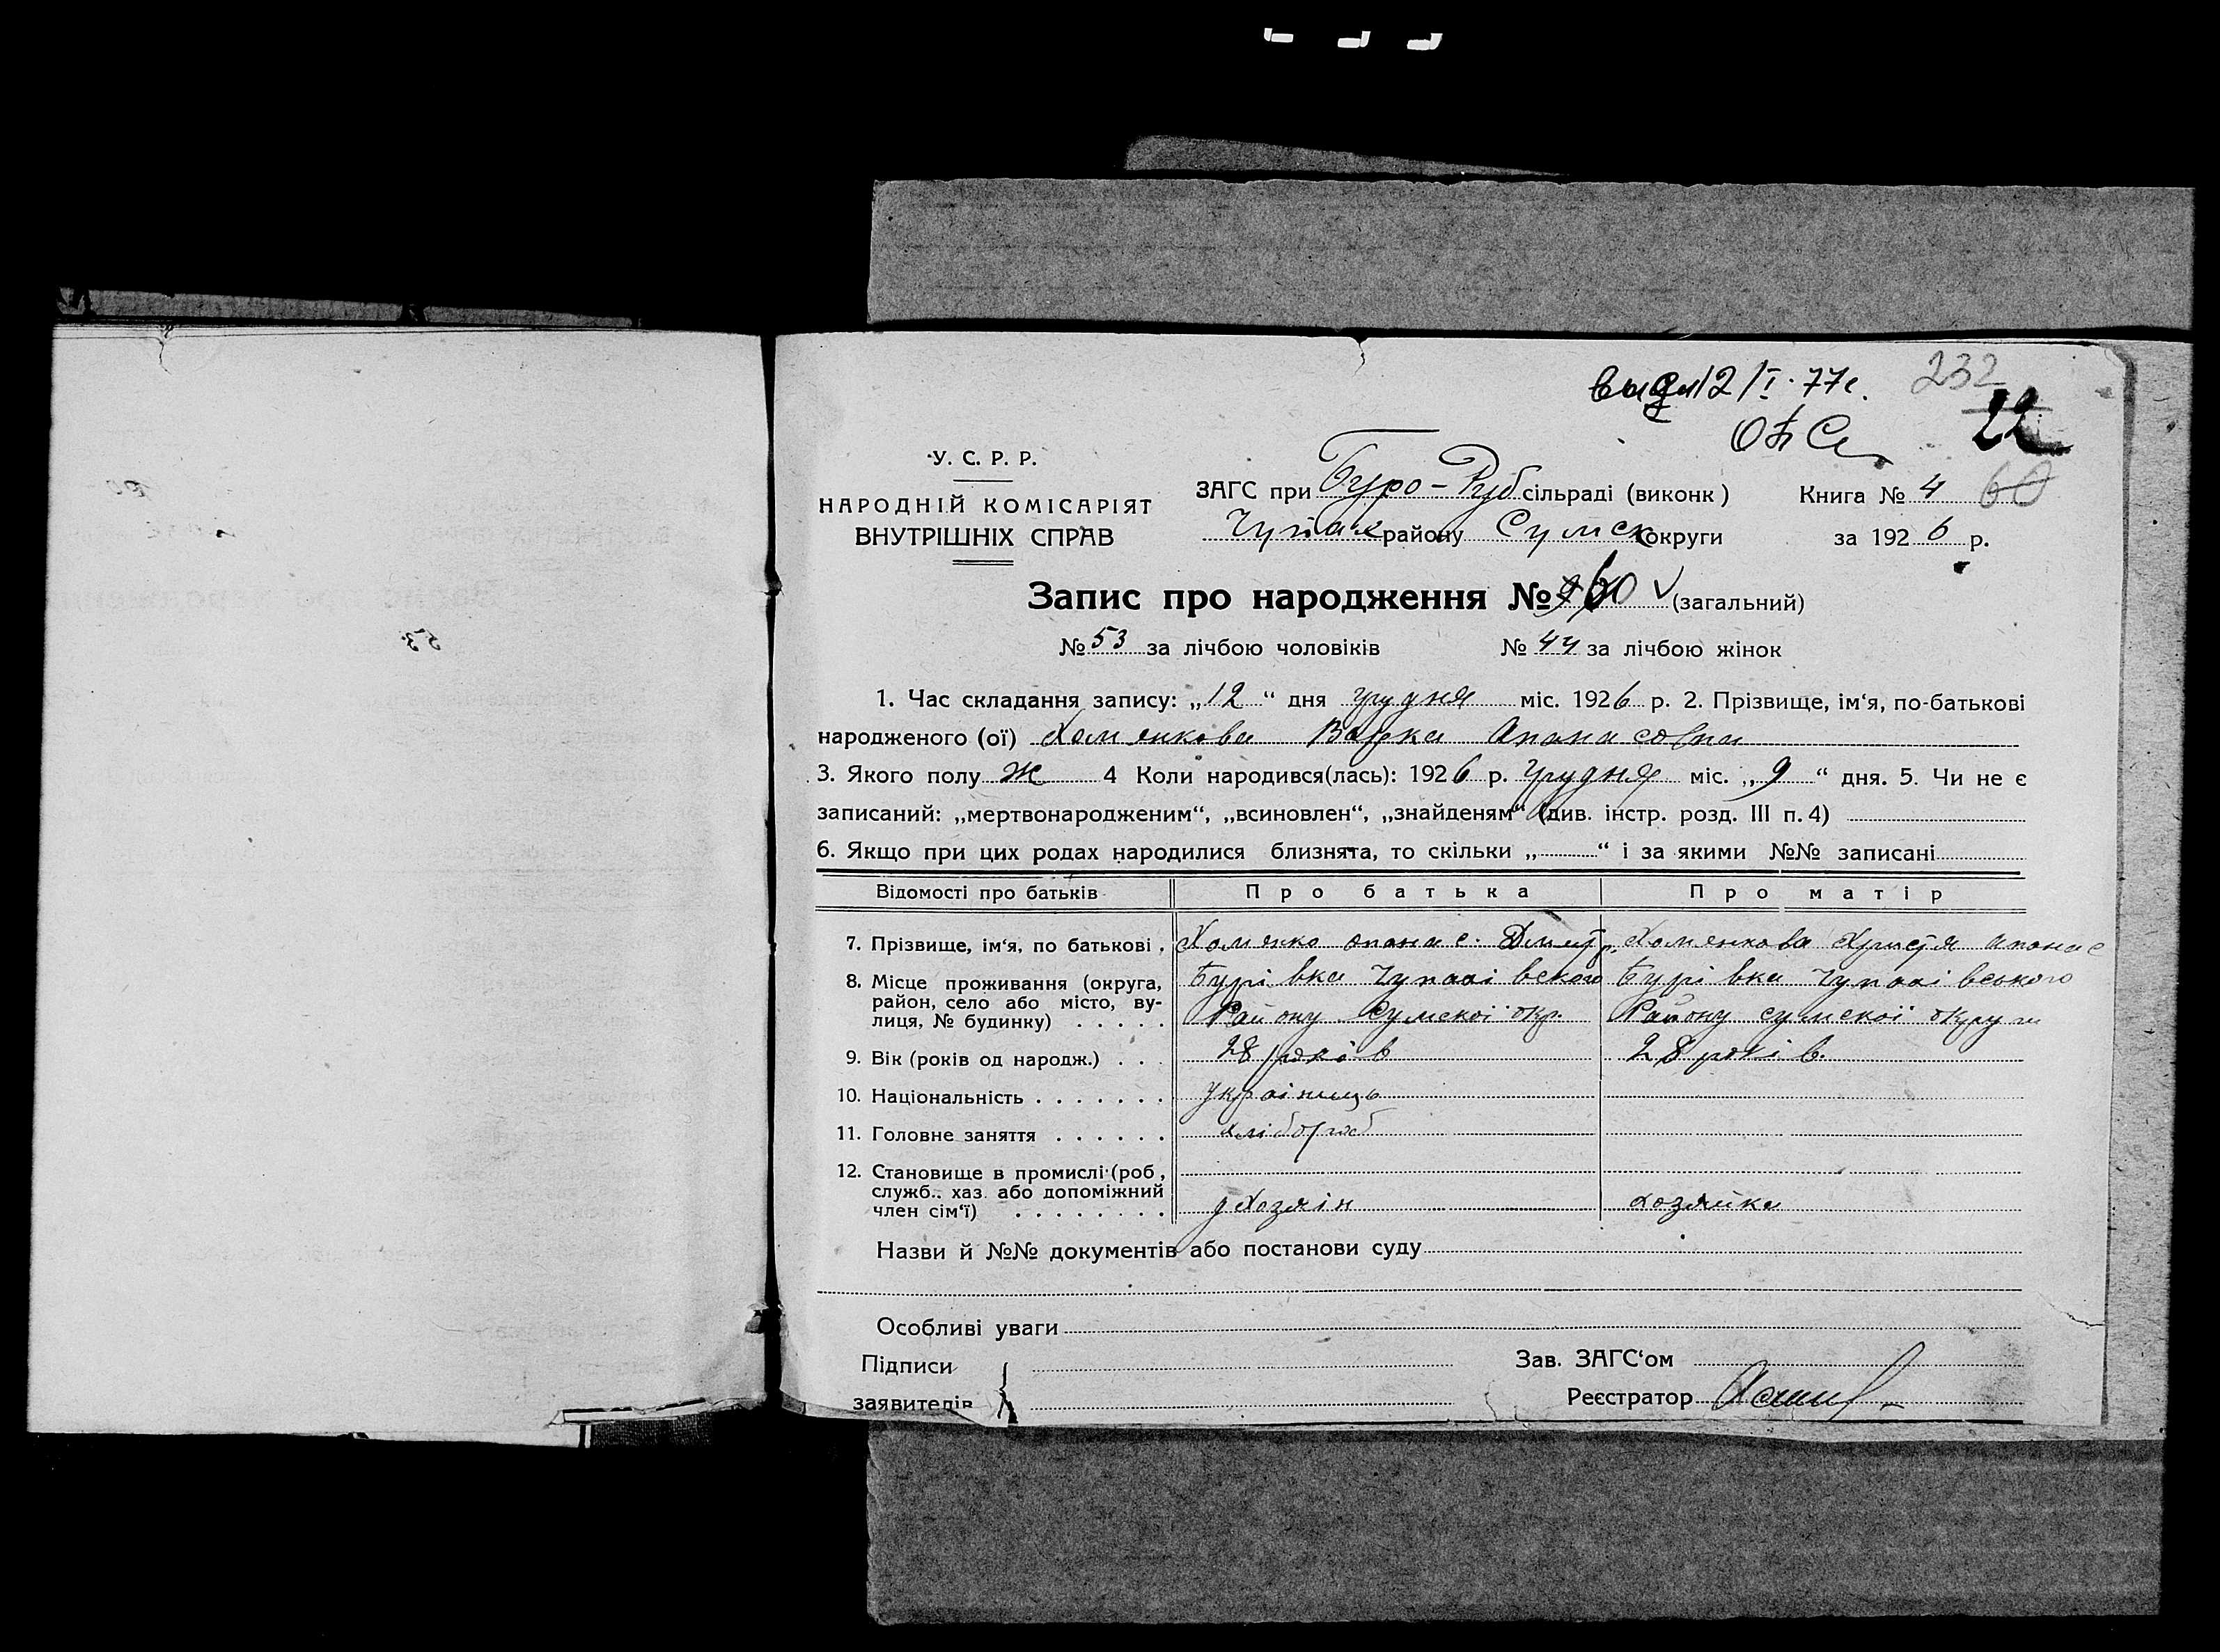 выд 12/I·77г.
232
22
У. С. Р. Р.
НАРОДНІЙ КОМІСАРІЯТ
ВНУТРІШНІХ СПРАВ
ЗАГС при Буро-Руб сільраді (виконк)
Книга № 4 60
Чупах району Сумск округи
за 1926 р.
Запис про народження № 60 (загальний)
№ 53 за лічбою чоловіків № 44 за лічбою жінок
1. Час складання запису: „12“ дня грудня міс. 1926 р. 2. Прізвище, ім‘я, по-батькові
народженого (ої) Хоменкова Варка Апанасовна
3. Якого полу ж 4 Коли народився(лась): 1926 р. грудня міс. „9“ дня. 5. Чи не є
записаний: „мертвонародженим“, „всиновлен“, „знайденям“ (див. інстр. розд. III п. 4)
6. Якщо при цих родах народилися близнята, то скільки „ “ і за якими №№ записані
Відомості про батьків Про батька Про матір
7. Прізвище, ім‘я, по батькові Хоменко опанас Дмитр. Хоменкова Христя Апанас
8. Місце проживання (округа, Бурівка Чупахівского Бурівка Чупахівського
район, село або місто, ву-
лиця, № будинку) Району Сумскої окр. Району сумскої округи
9. Вік (років од народж.) 28 років 28 років.
10. Національність українець
11. Головне заняття хлібороб
12. Становище в промислі (роб.,
служб.. хаз. або допоміжний
член сім‘ї) хозяін хозяйка
Назви й №№ документів або постанови суду
Особливі уваги
Підписи
Зав. ЗАГС‘ом
заявителів
Реєстратор